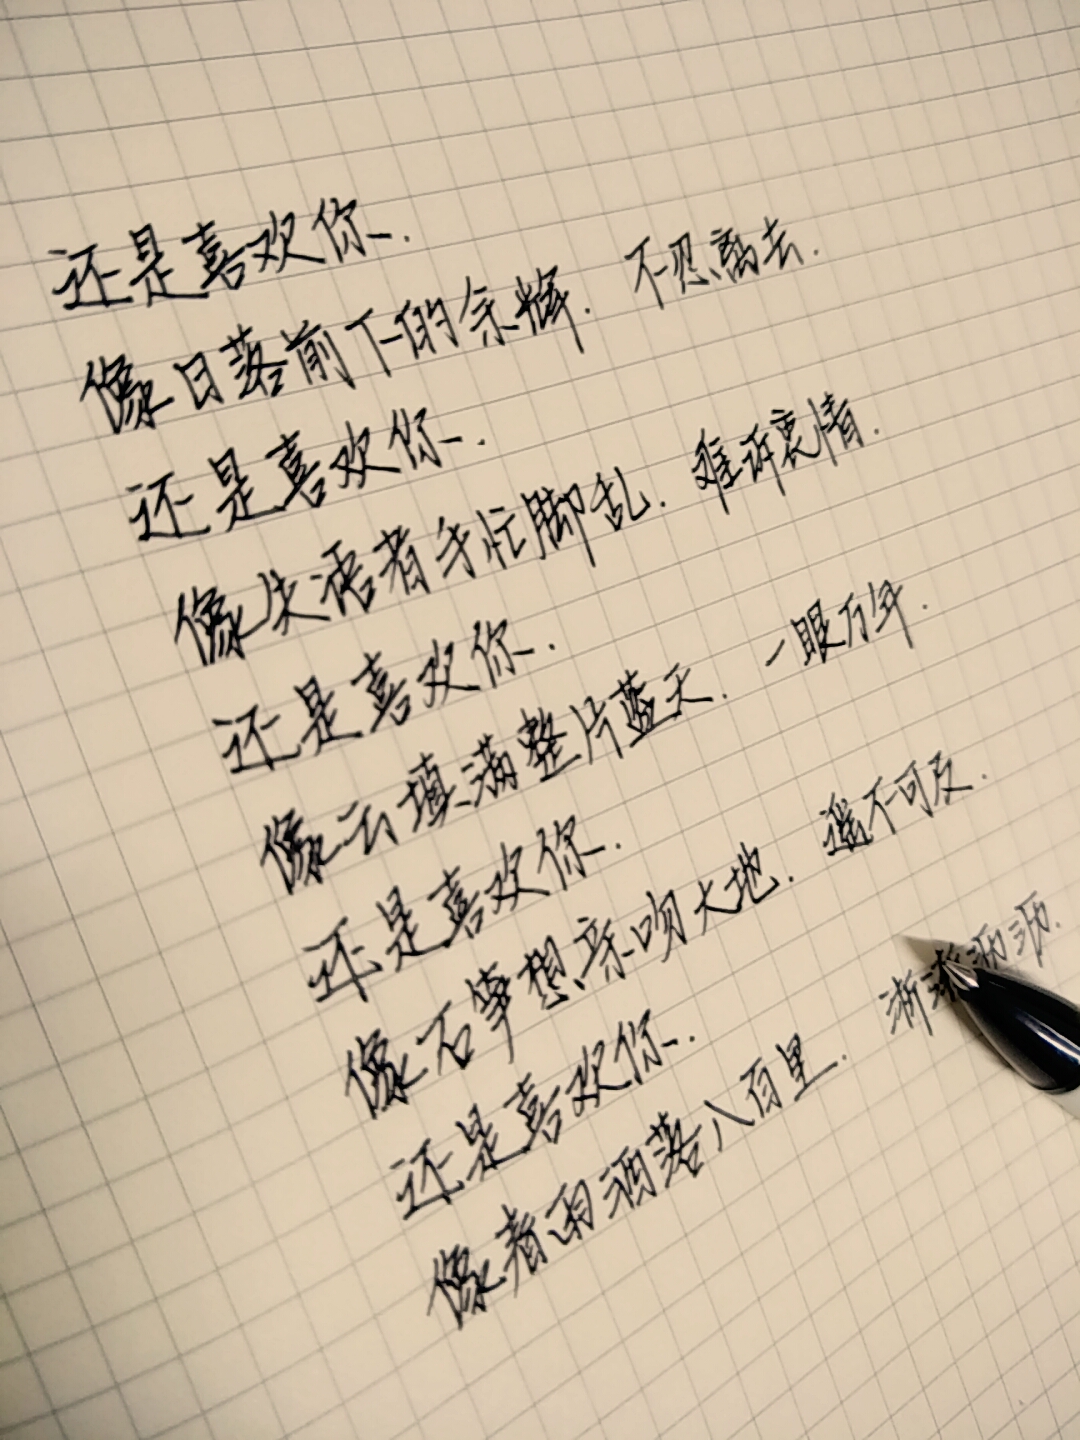 还是喜欢你.
像日落前下的余辉. 不忍离去.
还是喜欢你.
像失语者手忙脚乱. 难诉衷情.
还是喜欢你.
像云填满整片蓝天. 一眼万年.
还是喜欢你.
像石笋想亲吻大地. 遥不可及.
还是喜欢你.
像春雨洒落八百里. 淅淅沥沥.